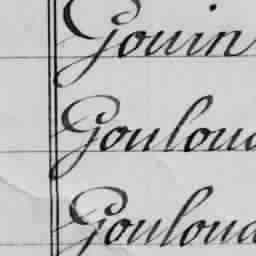 Gouin
Goulou
Goulou